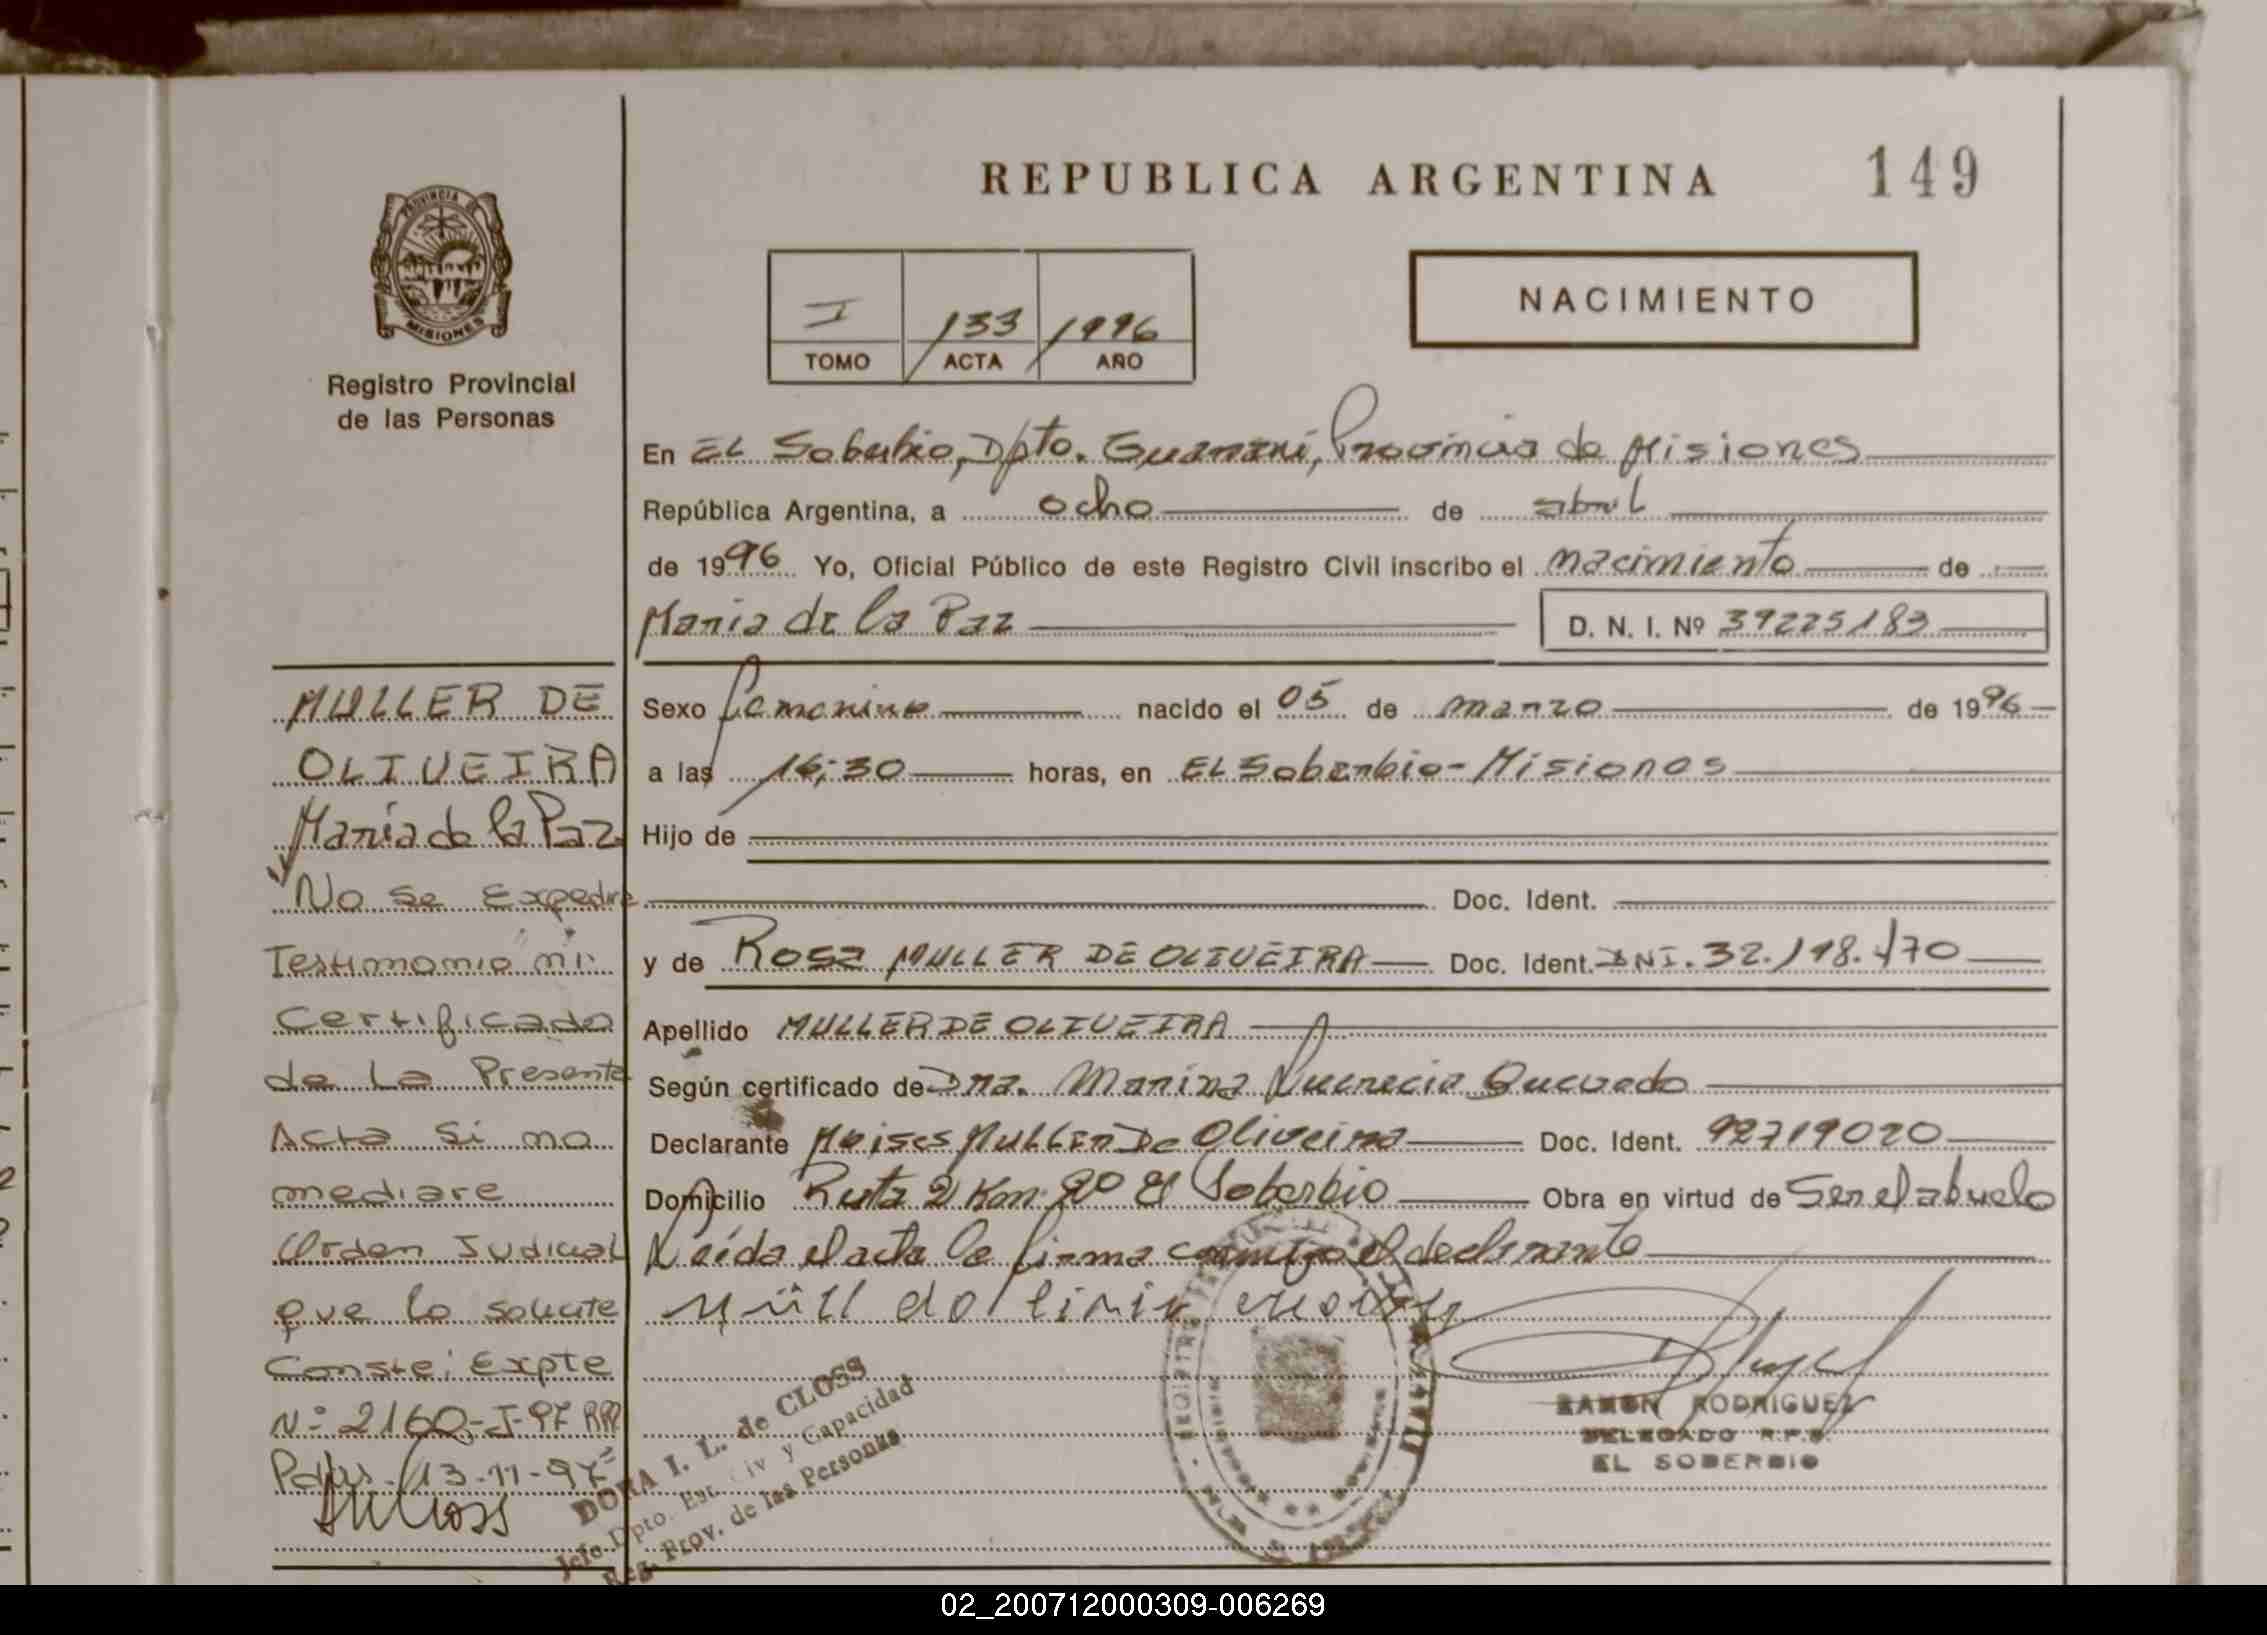 REPUBLICA ARGENTINA
149
PROVINCIA DE
MISIONES
Registro Provincial
de las Personas
I 133 1996
TOMO ACTA AÑO
NACIMIENTO
En EL Soberbio, Dpto. Guaraní, Provincia de Misiones
República Argentina, a ocho de abril
de 1996 Yo, Oficial Público de este Registro Civil inscribo el nacimiento de
Maria de la Paz
D. N. I. Nº 39225183
Sexo femenino nacido el 05 de marzo de 1996
a las 16:30 horas, en EL Soberbio - Misiones
Hijo de
Doc. Ident.
y de Rosa MULLER DE OLIVEIRA Doc. Ident. DNI. 32.198.170
Apellido MULLER DE OLIVEIRA
Según certificado de Dra. Marina Lucrecia Quevedo
Declarante Moises Muller De Oliveira Doc. Ident. 92719020
Domicilio Ruta 2 Km. 20 El Soberbio Obra en virtud de Ser el abuelo
Leída el acta la firma conmigo el declarante
MULLER DE
OLIVEIRA
María de la Paz
No se Expedira
Testimonio ni
Certificado
de La Presente
Acta Si no
mediare
Orden Judicial
que lo solicite
Conste: Expte
Nº 2160-J-97 RPP
Pdas. 13-11-97
DORA I. L. de CLOSS
Jefe Dpto. Est. Civ y Capacidad
Reg. Prov. de las Personas
RAMON RODRIGUEZ
DELEGADO R.P.P.
EL SOBERBIO
02_200712000309-006269